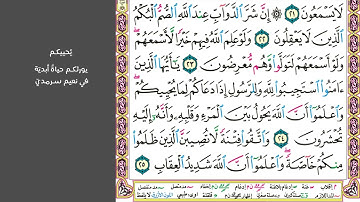 لَا يَسْمَعُونَ ۝٢١ إِنَّ شَرَّ الدَّوَابِّ عِندَ اللَّهِ الصُّمُّ الْبُكْمُ
الَّذِينَ لَا يَعْقِلُونَ ۝٢٢ وَلَوْ عَلِمَ اللَّهُ فِيهِمْ خَيْرًا لَّأَسْمَعَهُمْ
وَلَوْ أَسْمَعَهُمْ لَتَوَلَّوا وَّهُم مُّعْرِضُونَ ۝٢٣ يَا أَيُّهَا الَّذِينَ
آمَنُوا اسْتَجِيبُوا لِلَّهِ وَلِلرَّسُولِ إِذَا دَعَاكُمْ لِمَا يُحْيِيكُمْ
وَاعْلَمُوا أَنَّ اللَّهَ يَحُولُ بَيْنَ الْمَرْءِ وَقَلْبِهِ وَأَنَّهُ إِلَيْهِ
تُحْشَرُونَ ۝٢٤ وَاتَّقُوا فِتْنَةً لَّا تُصِيبَنَّ الَّذِينَ ظَلَمُوا
مِنكُمْ خَاصَّةً وَاعْلَمُوا أَنَّ اللَّهَ شَدِيدُ الْعِقَابِ ۝٢٥
يُحييكم
يورثكم حياةً أبديّة
في نعيم سرمديّ